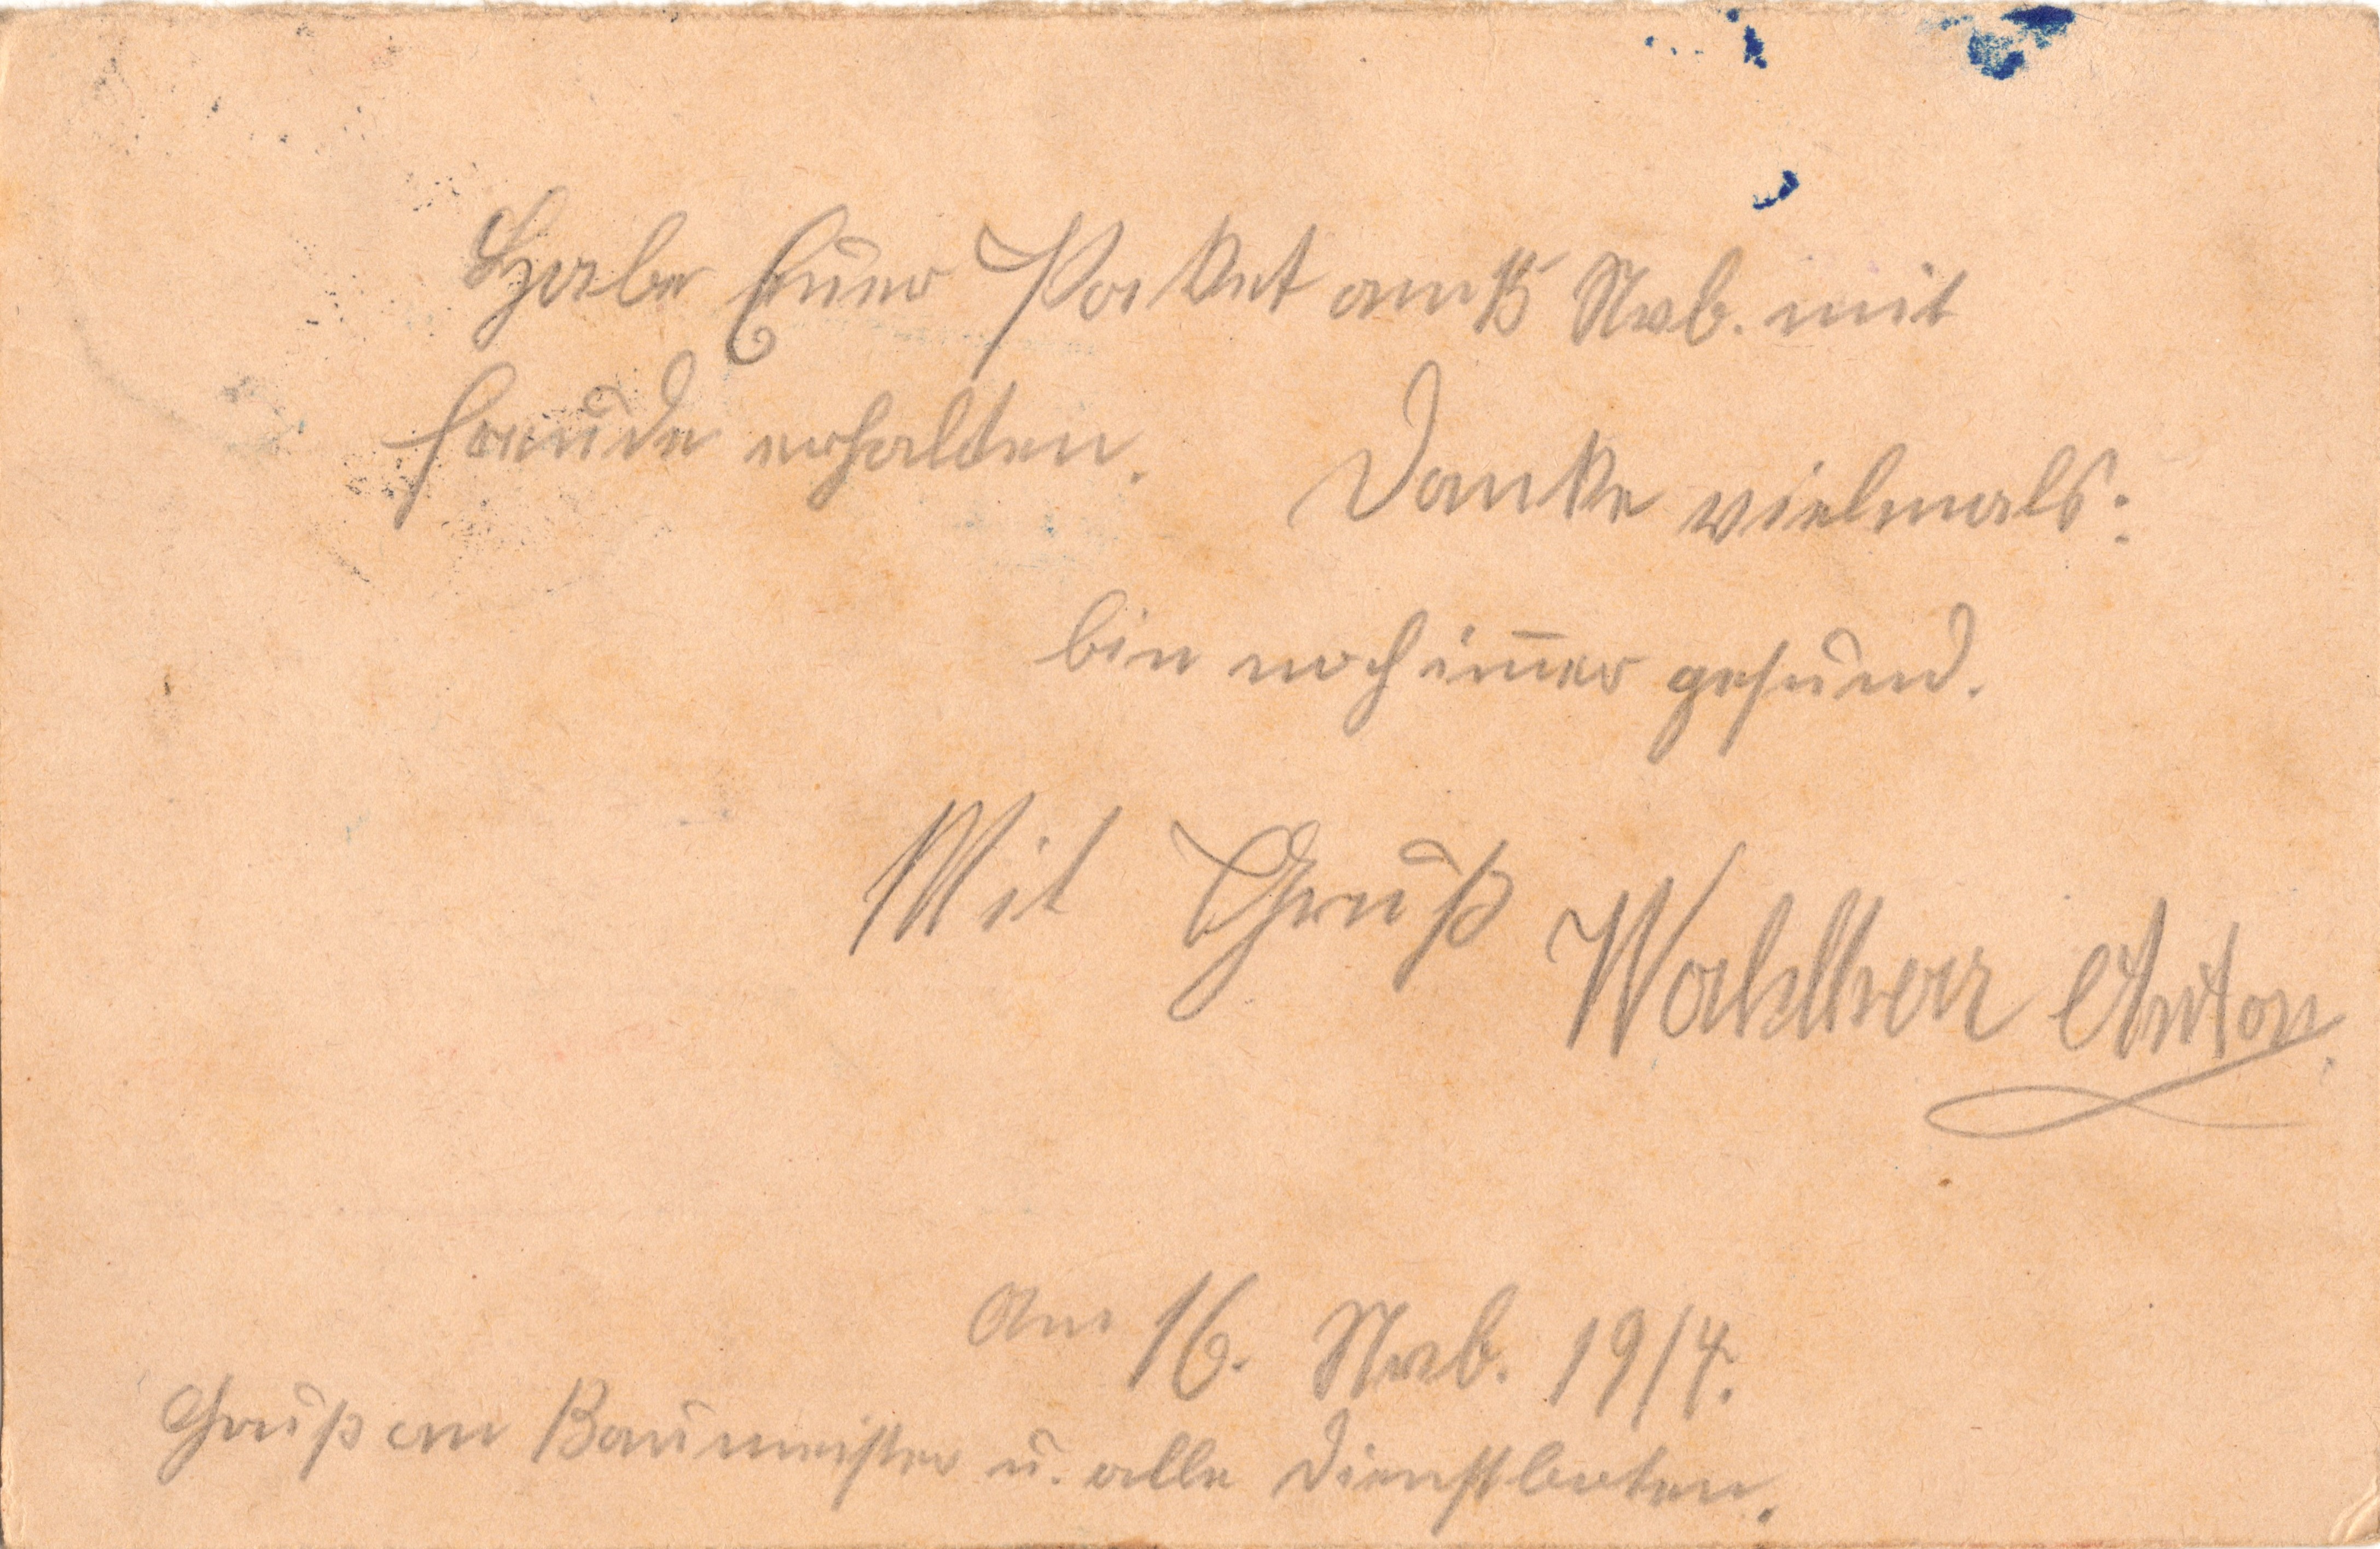 Habe Euer Paket am 15 Novb. mit
freude erhalten. Danke vielmals:
bin noch im̅er gesund.
Mit Gruß Waldherr Anton.
Am 16. Novb. 1914.
Gruß an Baumeister u. alle Dienstboten.